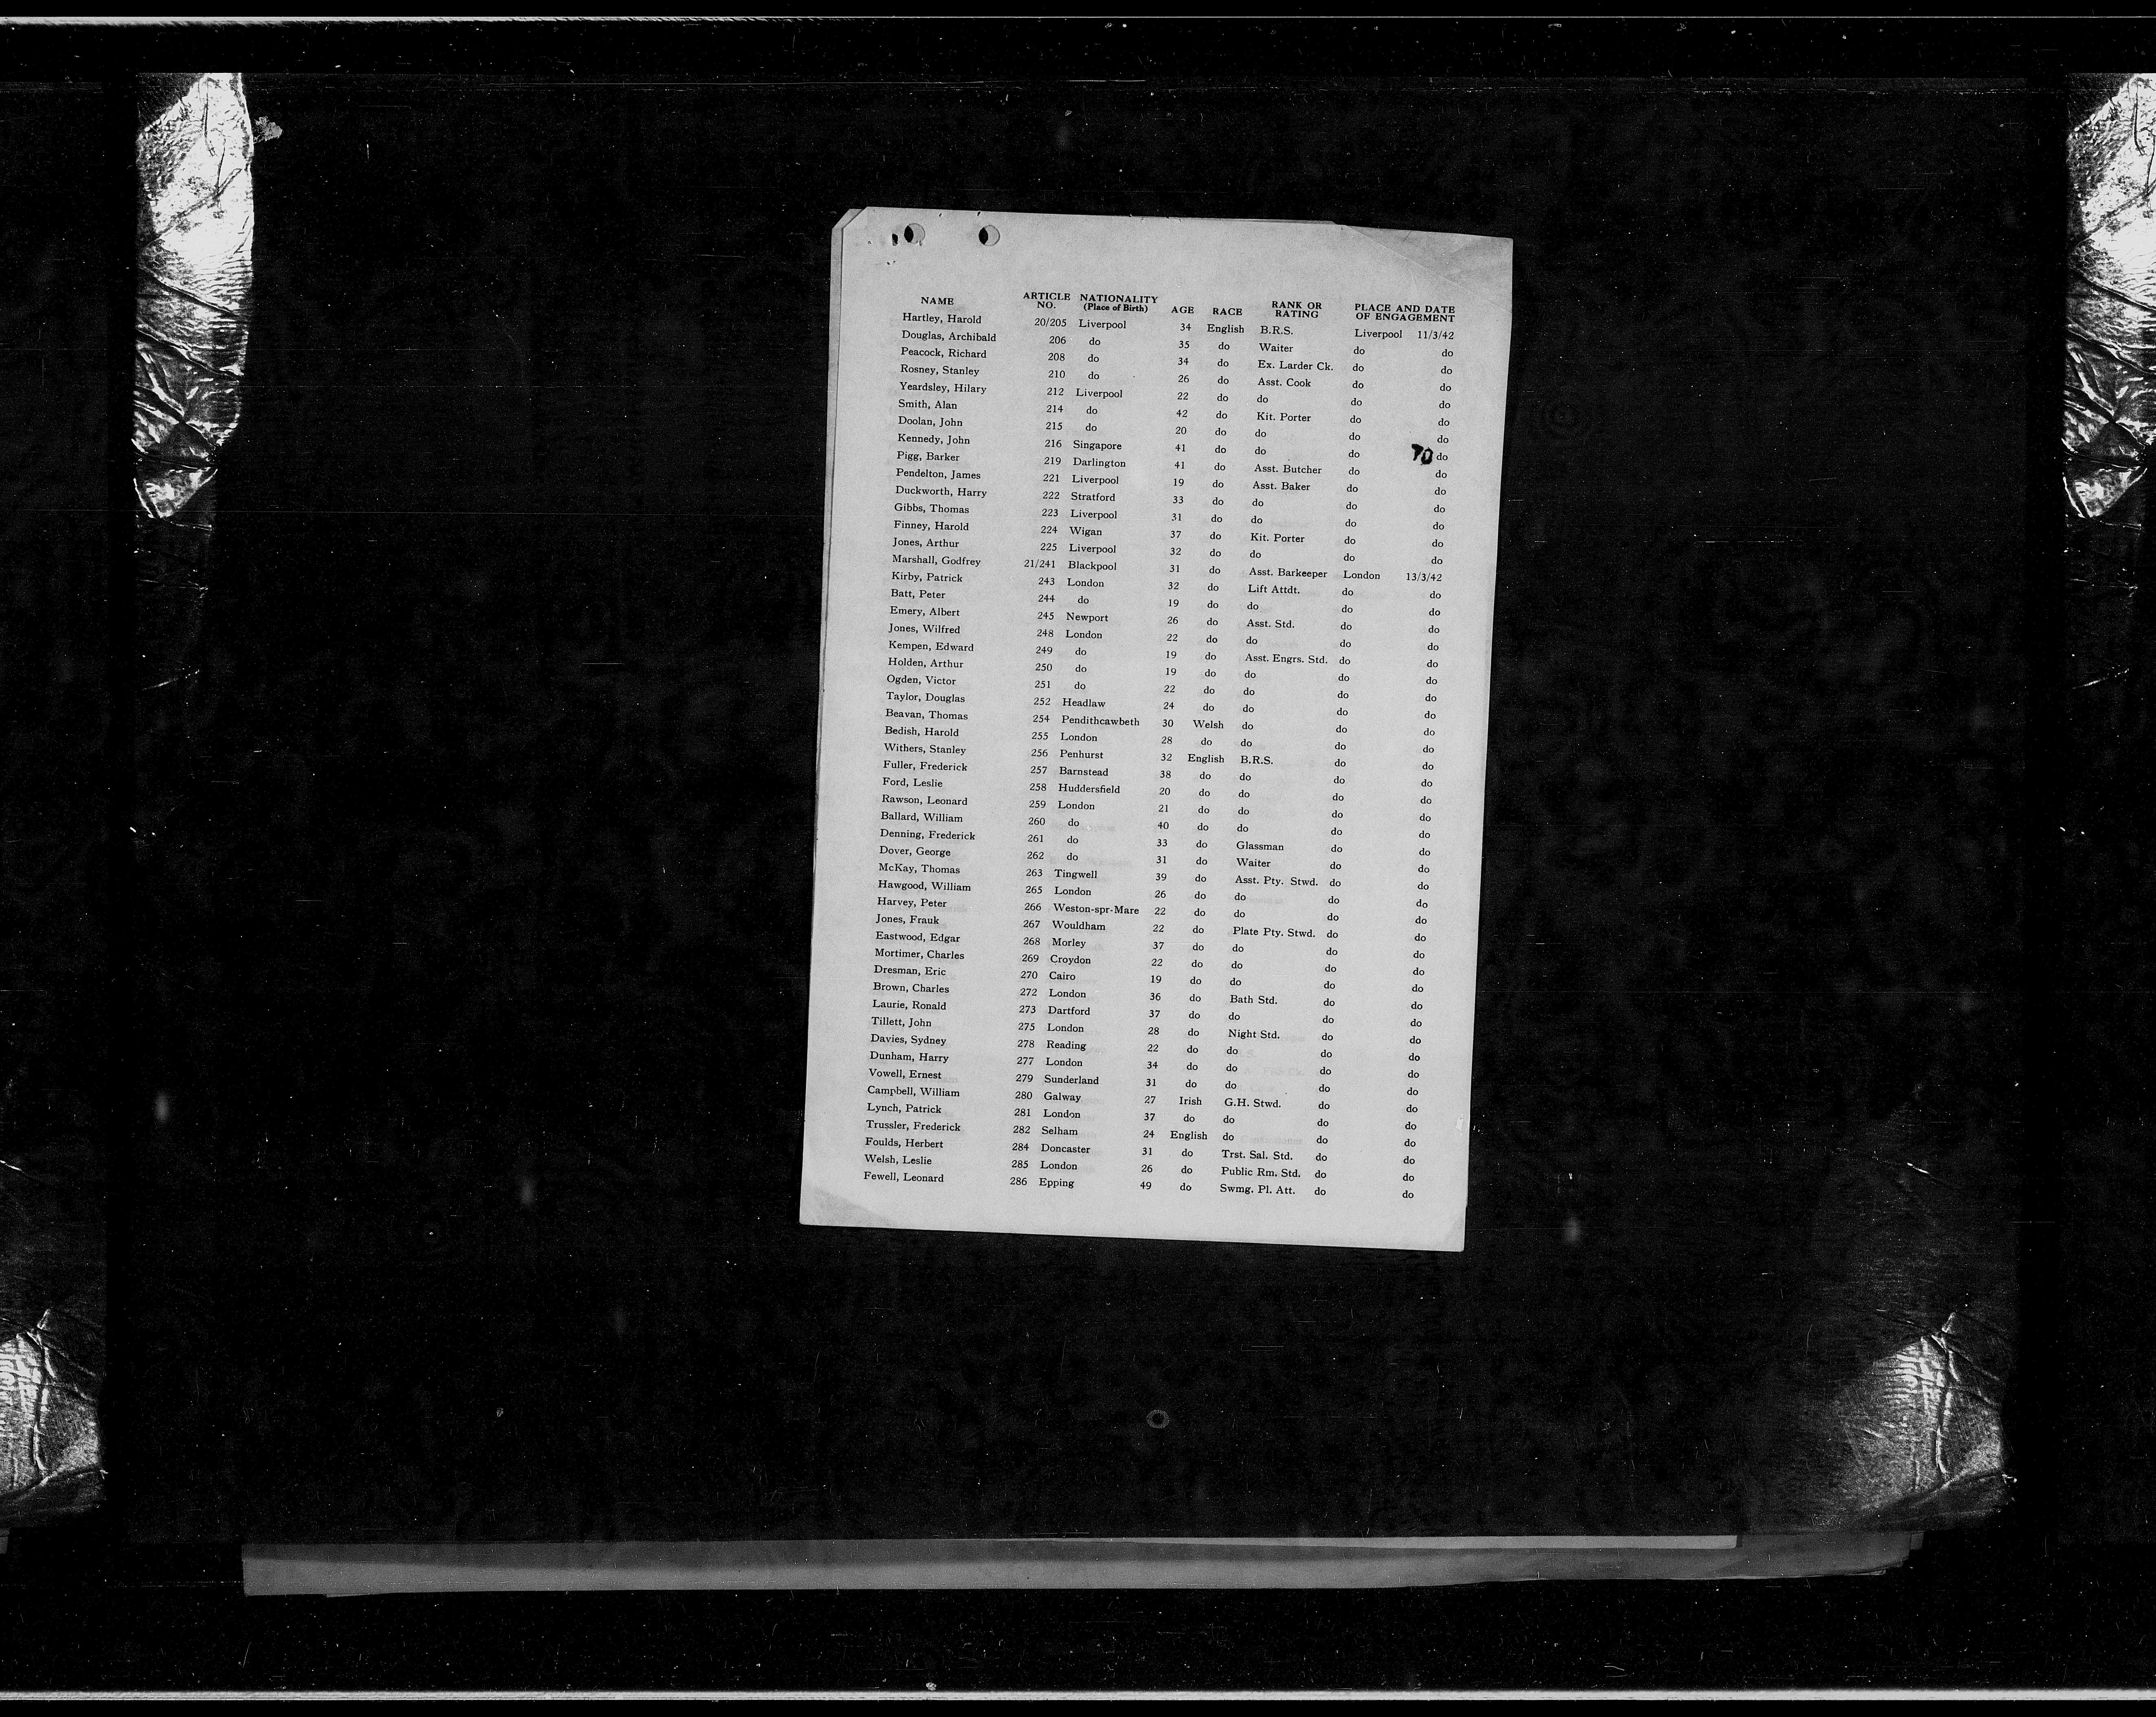 NAME ARTICLE NO. NATIONALITY (Place of Birth) AGE RACE RANK OR RATING PLACE AND DATE OF ENGAGEMENT
Hartley, Harold 20/205 Liverpool 34 English B.R.S. Liverpool 11/3/42
Douglas, Archibald 206 do 35 do Waiter do do
Peacock, Richard 208 do 34 do Ex. Larder Ck. do do
Rosney, Stanley 210 do 26 do Asst. Cook do do
Yeardsley, Hilary 212 Liverpool 22 do do do do
Smith, Alan 214 do 42 do Kit. Porter do do
Doolan, John 215 do 20 do do do do
Kennedy, John 216 Singapore 41 do do do 70 do
Pigg, Barker 219 Darlington 41 do Asst. Butcher do do
Pendelton, James 221 Liverpool 19 do Asst. Baker do do
Duckworth, Harry 222 Stratford 33 do do do do
Gibbs, Thomas 223 Liverpool 31 do do do do
Finney, Harold 224 Wigan 37 do Kit. Porter do do
Jones, Arthur 225 Liverpool 32 do do do do
Marshall, Godfrey 21/241 Blackpool 31 do Asst. Barkeeper London 13/3/42
Kirby, Patrick 243 London 32 do Lift Attdt. do do
Batt, Peter 244 do 19 do do do do
Emery, Albert 245 Newport 26 do Asst. Std. do do
Jones, Wilfred 248 London 22 do do do do
Kempen, Edward 249 do 19 do Asst. Engrs. Std. do do
Holden, Arthur 250 do 19 do do do do
Ogden, Victor 251 do 22 do do do do
Taylor, Douglas 252 Headlaw 24 do do do do
Beavan, Thomas 254 Pendithcawbeth 30 Welsh do do do
Bedish, Harold 255 London 28 do do do do
Withers, Stanley 256 Penhurst 32 English B.R.S. do do
Fuller, Frederick 257 Barnstead 38 do do do do
Ford, Leslie 258 Huddersfield 20 do do do do
Rawson, Leonard 259 London 21 do do do do
Ballard, William 260 do 40 do do do do
Denning, Frederick 261 do 33 do Glassman do do
Dover, George 262 do 31 do Waiter do do
McKay, Thomas 263 Tingwell 39 do Asst. Pty. Stwd. do do
Hawgood, William 265 London 26 do do do do
Harvey, Peter 266 Weston-spr-Mare 22 do do do do
Jones, Frauk 267 Wouldham 22 do Plate Pty. Stwd. do do
Eastwood, Edgar 268 Morley 37 do do do do
Mortimer, Charles 269 Croydon 22 do do do do
Dresman, Eric 270 Cairo 19 do do do do
Brown, Charles 272 London 36 do Bath Std. do do
Laurie, Ronald 273 Dartford 37 do do do do
Tillett, John 275 London 28 do Night Std. do do
Davies, Sydney 278 Reading 22 do do do do
Dunham, Harry 277 London 34 do do do do
Vowell, Ernest 279 Sunderland 31 do do do do
Campbell, William 280 Galway 27 Irish G.H. Stwd. do do
Lynch, Patrick 281 London 37 do do do do
Trussler, Frederick 282 Selham 24 English do do do
Foulds, Herbert 284 Doncaster 31 do Trst. Sal. Std. do do
Welsh, Leslie 285 London 26 do Public Rm. Std. do do
Fewell, Leonard 286 Epping 49 do Swmg. Pl. Att. do do